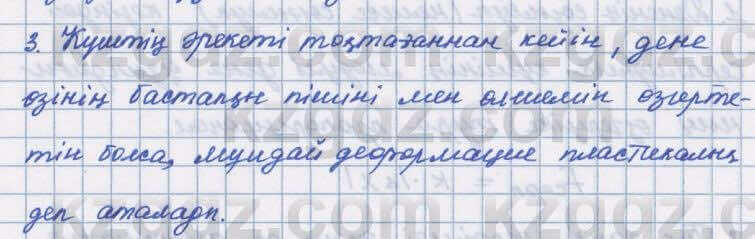 3. Күштің әрекеті тоқтағаннан кейін, дене
өзінің бастапқы пішіні мен өлшемін өзгерте-
тін болса, мұндай деформация пластикалық
деп аталады.